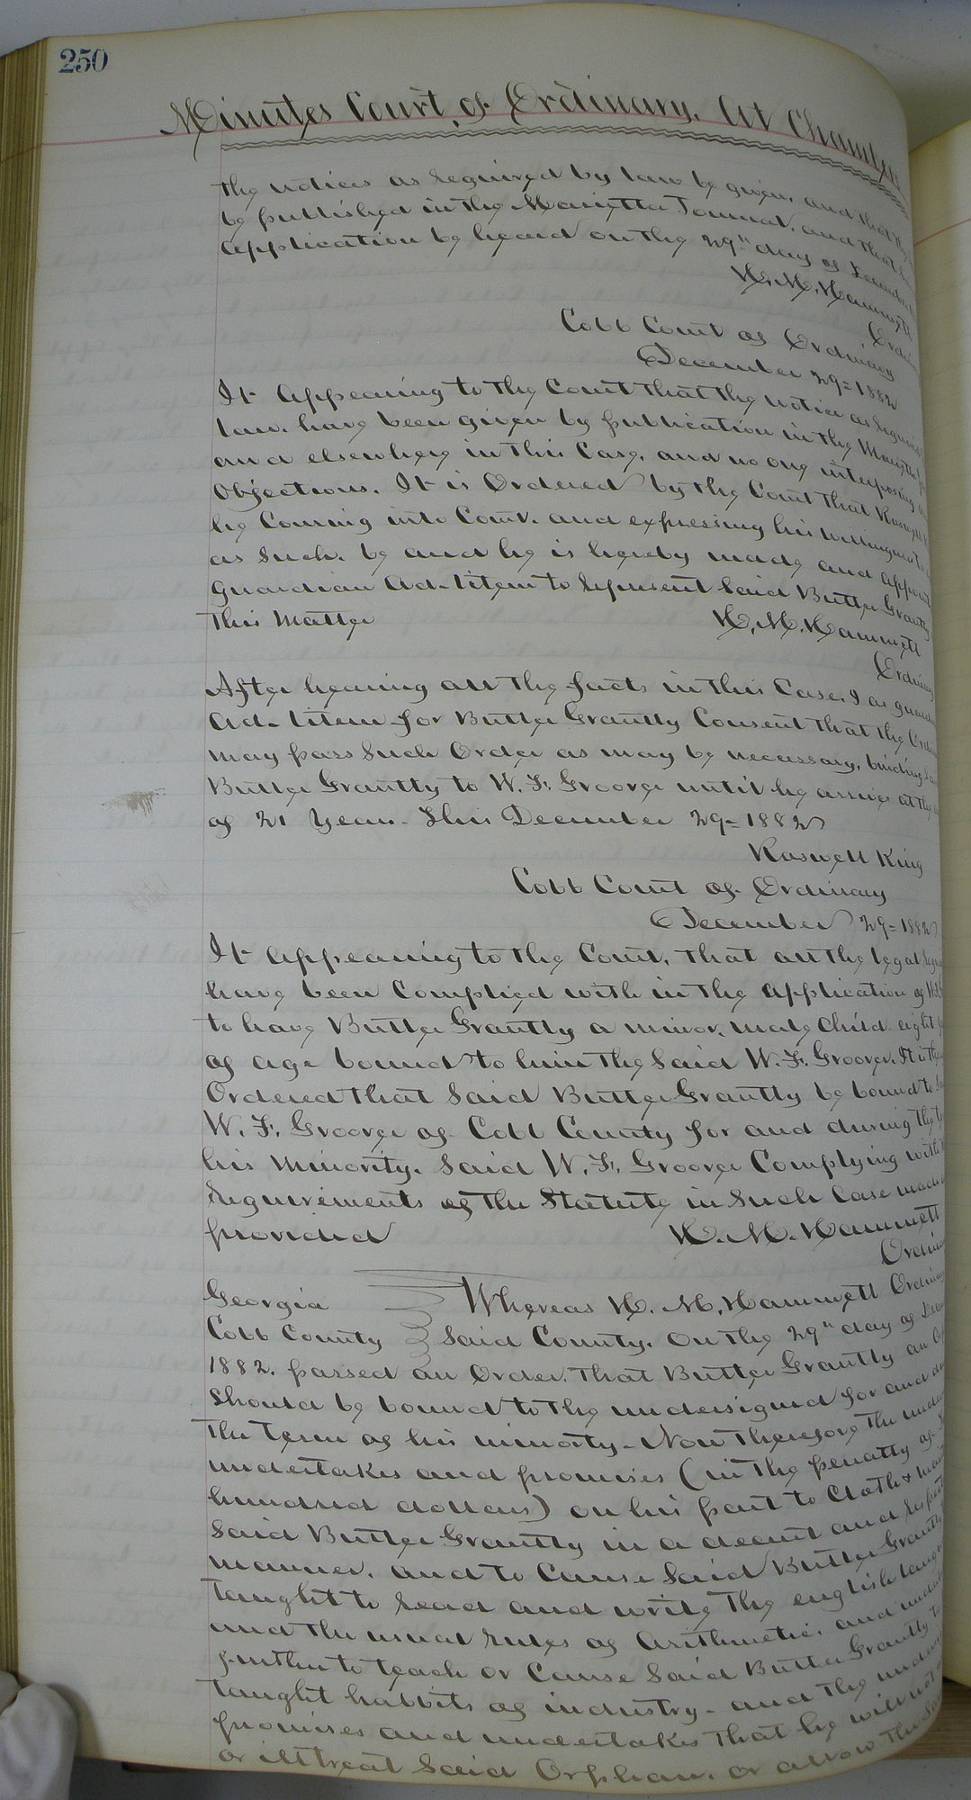 250
Minutes Court of Ordinary, At Chambers
the notices as required by law be given, and that
be published in the Marietta Journal, and that
application be heard on the 29" day of December
H. M. Hammett
Ordin
Cobb Court of Ordinary
December 29= 1882
It appearing to the Court that the notice as required
law. have been given by publication in the Marietta
and elsewhere in this Case, and no one interposing
Objections. It is Ordered by the Court that Roswell
he Coming into Court. and expressing his willingness to
as such. be and he is hereby made and appoint
guardian ad-litem to represent said Butler Grantly
this Matter
H. M. Hammett
Ordinary
After hearing all the facts in this Case. I as guardian
ad-litem for Butler Grantly Consent that the Ordi
may pass Such Order as may be necessary, binding
Butler Grantly to W. F. Groover until he arrives at the
of 21 Years. This December 29= 1882
Roswell King
Cobb Court of Ordinary
December 29= 1882
It appearing to the Court, that all the legal
have been Complied with in the application of
to have Butler Grantly a minor. male child eight
of age bound to him the said W. F. Groover. It is
Ordered that said Butler Grantly be bound to
W. F. Groover of Cobb County for and during the
his minority. Said W. F. Groover Complying with
requirements of the Statute in Such Case made
provided
H. M. Hammett
Ordin
Georgia Whereas H. M. Hammett Ordinary
Cobb County Said County. On the 29" day of
1882. passed an Order. that Butler Grantly an
should be bound to the undersigned for and
the term of his minorty - Now therefore the
undertakes and promises (in the penalty of
hundred dollars) on his part to Cloth &
Said Butler Grantly in a decent and
manner. and to Cause Said Butler Grantly
taught to read and write the english
and the usual rules of arithmetic. and
further to teach or Cause Said Butler Grantly to
taught habbits of industry - and the
promises and undertakes that he will not
or illtreat Said Orphan. or allow the